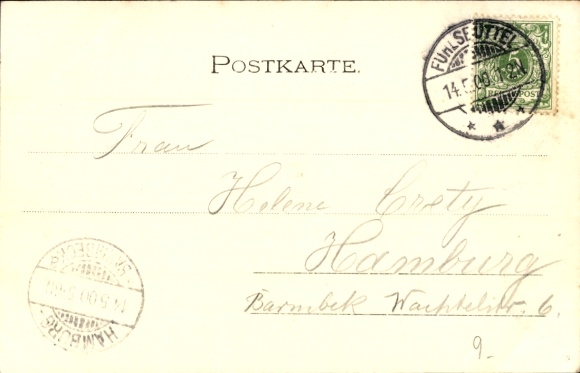 POSTKARTE.
FUHLSBÜTTEL
14.5.00. 1-2N.
REICHSPOST
Frau
Helene Crety
Hamburg
Barmbek Wachtelstr. 6.
HAMBURG
14.5.00
9.